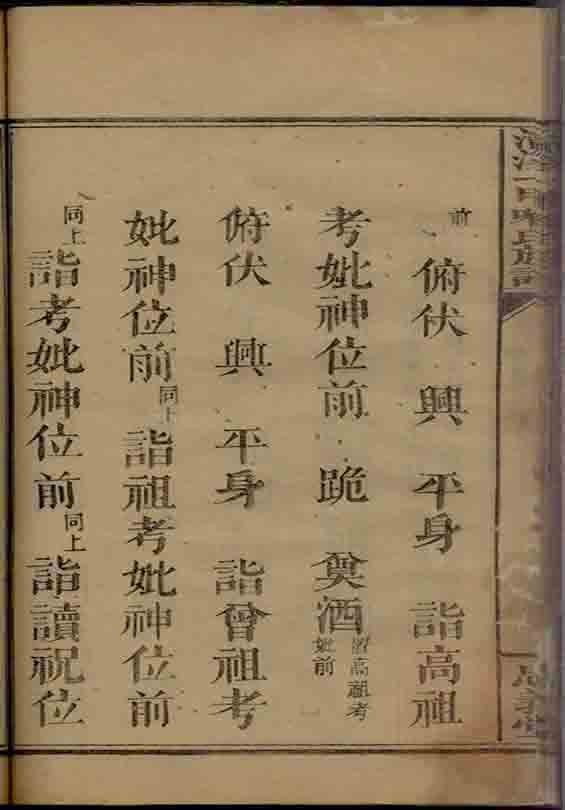 前 俯伏 興 平身 詣高祖
考妣神位前 跪 奠酒 高祖考妣前
俯伏 興 平身 詣曾祖考
妣神位前 同上 詣祖考妣神位前
同上 詣考妣神位前 同上 詣讀祝位